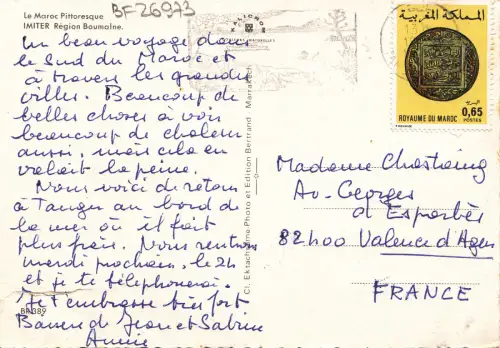 Le Maroc Pittoresque
IMITER Région Boumalne.
BF26973
Un beau voyage dans
le Sud du Maroc et
à travers les grandes
villes. Beaucoup de
belles choses à voir
beaucoup de chaleur
aussi, mais cela en
valait la peine.
Nous voici de retour
à Tanger au bord de
la mer où il fait
plus frais. Nous rentrons
mardi prochain, le 24
et je te téléphonerai.
Je t'embrasse bien fort
Baisers de Jean et Sabine
Annie
BF 389
Cl. Ektachrome Photo et Edition Bertrand Marrakech
المملكة المغربية
ROYAUME DU MAROC
0,65
POSTES
Madame Chastaing
Av. Georges
d'Esparbès
82400 Valence d'Agen
FRANCE